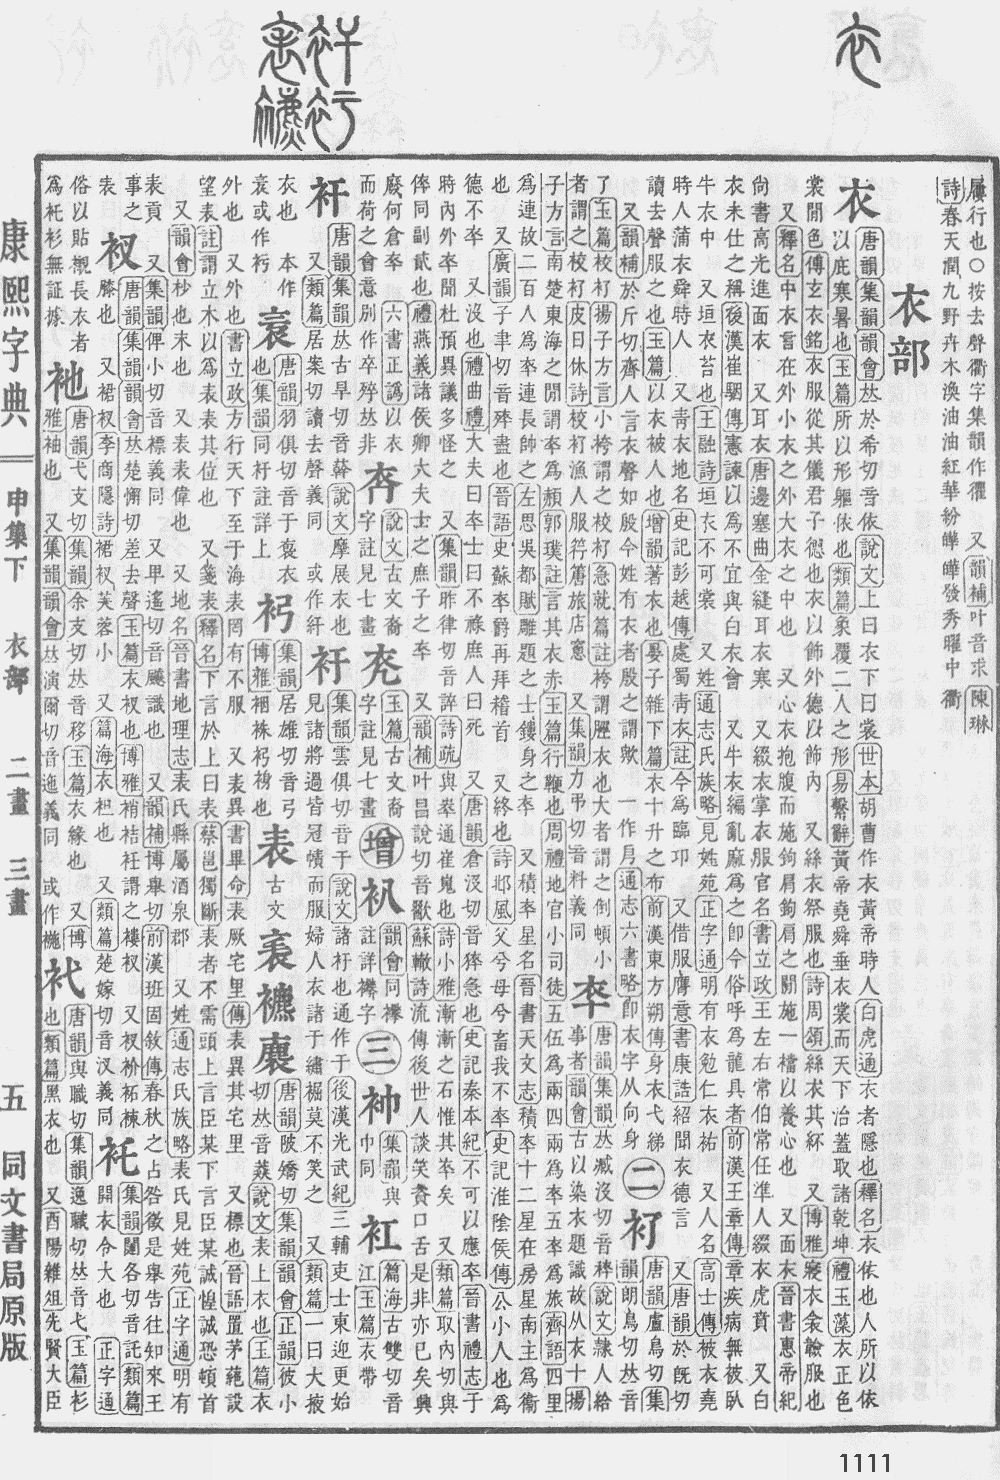 康熙字典 申集下 衣部 二畫 三畫 五 同文書局原版
屨行也○按去聲衢字集韻作忂 又韻補叶音求陳琳
詩春天潤九野卉木渙油油紅華紛曄曄發秀曜中衢
衣部
衣
唐韻集韻韻會𠀤於希切音依說文上曰衣下曰裳世本胡曹作衣黃帝時人白虎通衣者隱也釋名衣依也人所以依
以庇寒暑也玉篇所以形軀依也類篇象覆二人之形易繫辭黃帝堯舜垂衣裳而天下治蓋取諸乾坤禮玉藻衣正色
裳閒色傳玄衣銘衣服從其儀君子德也衣以飾外德以飾內 又絲衣祭服也詩周頌絲衣其紑 又博雅寢衣衾服也
又釋名中衣言在外小衣之外大衣之中也 又心衣抱腹而施鉤肩鉤肩之閒施一襠以養心也 又面衣晉書惠帝紀
尚書高光進面衣 又耳衣唐邊塞曲金縫耳衣寒 又綴衣掌衣服官名書立政王左右常伯常任準人綴衣虎賁 又白
衣未仕之稱後漢崔駰傳憲諫以爲不宜與白衣會 又牛衣編亂麻爲之卽今俗呼爲龍具者前漢王章傳章疾病無被臥
牛衣中 又垣衣苔也王融詩垣衣不可裳 又姓通志氏族略見姓苑正字通明有衣勉仁衣祐 又人名高士傳被衣堯
時人蒲衣舜時人 又靑衣地名史記彭越傳處蜀靑衣註今爲臨卭 又借服膺意書康誥紹聞衣德言 又唐韻於旣切
讀去聲服之也玉篇以衣被人也增韻著衣也晏子雜下篇衣十升之布前漢東方朔傳身衣弋綈
又韻補於斤切齊人言衣聲如殷今姓有衣者殷之謂歟 一作㐆通志六書略卽衣字从向身
㊁
唐韻盧鳥切集
韻朗鳥切𠀤音
了玉篇校衦揚子方言小袴謂之校衦急就篇註袴謂脛衣也大者謂之倒頓小
者謂之校衦皮日休詩校衦漁人服筕簹旅店窻 又集韻力弔切音料義同
卒
唐韻集韻𠀤臧沒切音稡說文隸人給
事者韻會古以染衣題識故从衣十揚
子方言南楚東海之閒謂卒爲頳郭璞註言其衣赤玉篇行鞭也周禮地官小司徒五伍爲兩四兩爲卒五卒爲旅齊語四里
爲連故二百人爲卒連長帥之左思吳都賦雕題之士鏤身之卒 又積卒星名晉書天文志積卒十二星在房星南主爲衞
也 又廣韻子聿切音殚盡也晉語史蘇卒爵再拜稽首 又終也詩邶風父兮母兮畜我不卒史記淮陰侯傳公小人也爲
德不卒 又沒也禮曲禮大夫曰卒士曰不祿庶人曰死 又唐韻倉沒切音猝急也史記秦本紀不可以應卒晉書禮志于
時內外卒聞杜預異議多怪之 又集韻昨律切音誶詩疏與崒通崔嵬也詩小雅漸漸之石惟其卒矣 又類篇取內切與
倅同副貳也禮燕義諸侯卿大夫士之庶子之卒 又韻補叶昌說切音歠蘇轍詩流傳後世人談笑資口舌是非亦已矣興
廢何倉卒 六書正譌以衣
而荷之會意別作卒殚𠀤非
說文古文裔
字註見士畫
玉篇古文裔
字註見七畫
增
韻會同襻
註詳襻字
㊂
集韻與
巾同
篇海古雙切音
江玉篇衣帶
衦
唐韻集韻𠀤古旱切音簳說文摩展衣也
又類篇居案切讀去聲義同 或作紆
衧
集韻雲俱切音于說文諸衧也通作于後漢光武紀三輔吏士東迎更始
見諸將過皆冠幘而服婦人衣諸于繡𧝬莫不笑之 又類篇一曰大掖
衣也 本作
唐韻羽俱切音于袬衣
也集韻同衧註詳上
集韻居雄切音弓
博雅裍袾躬袴也
表
古文
唐韻陂嬌切集韻韻會正韻彼小
切𠀤音䅺說文表上衣也玉篇衣
外也 又外也書立政方行天下至于海表罔有不服 又表異書畢命表厥宅里傳表異其宅里 又標也晉語置茅蕝設
望表註謂立木以爲表表其位也 又箋表釋名下言於上曰表蔡邕獨斷表者不需頭上言臣某下言臣某誠惶誠恐頓首
又韻會杪也末也 又表表偉也 又地名晉書地理志表氏縣屬酒泉郡 又姓通志氏族略表氏見姓苑正字通明有
表貢 又集韻俾小切音標義同 又𤰞遙切音飈識也 又韻補博舉切前漢班固敘傳春秋之占咎徵是舉告往知來王
事之表
衩
唐韻集韻韻會𠀤楚懈切差去聲玉篇衣衩也博雅褙袺衽謂之樓衩 又衩衯祏𧘱
膝也 又裙衩李商隱詩裙衩芙蓉小 又篇海衣衵也 又類篇楚嫁切音汊義同
集韻闥各切音託類篇
開衣令大也 正字通
俗以貼襯長衣者
爲杔衫無証據
衪
唐韻弋支切集韻余支切𠀤音移玉篇衣緣也 又博
雅袖也 又集韻韻會𠀤演爾切音迤義同 或作𧛧
唐韻與職切集韻逸職切𠀤音弋玉篇衫
也類篇黑衣也 又酉陽雜俎先賢大臣
1111